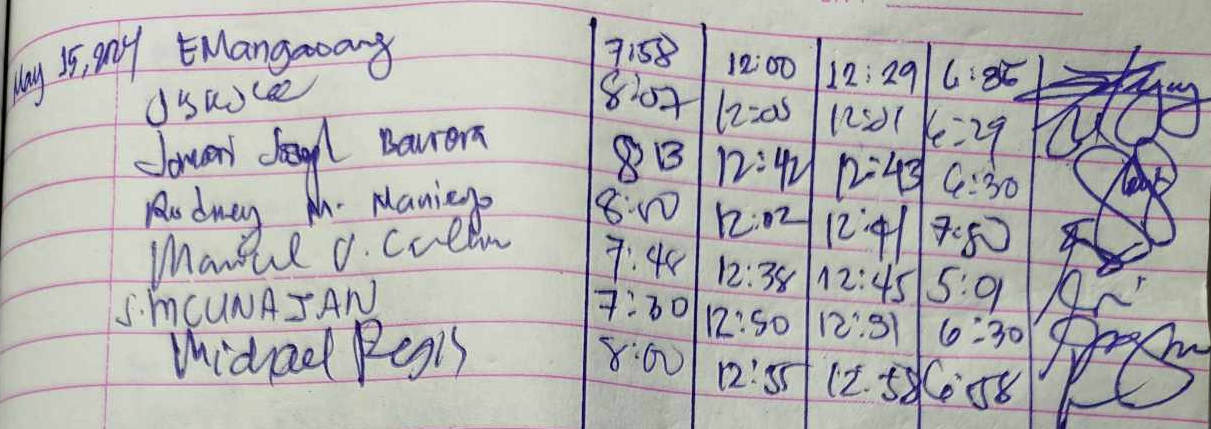 May 15, 2024 EMangaoang 7:58 12:00 12:29 6:36
8:07 12:05 12:21 6:29
Joseph Barrera 8:13 12:42 12:43 6:30
Rodney M. Maniego 8:00 12:02 12:41 7:50
Manuel V. 7:48 12:38 12:45 5:01
S. MCUNAJAN 7:30 12:50 12:51 6:30
Michael Regis 8:00 12:55 12:58 6:58